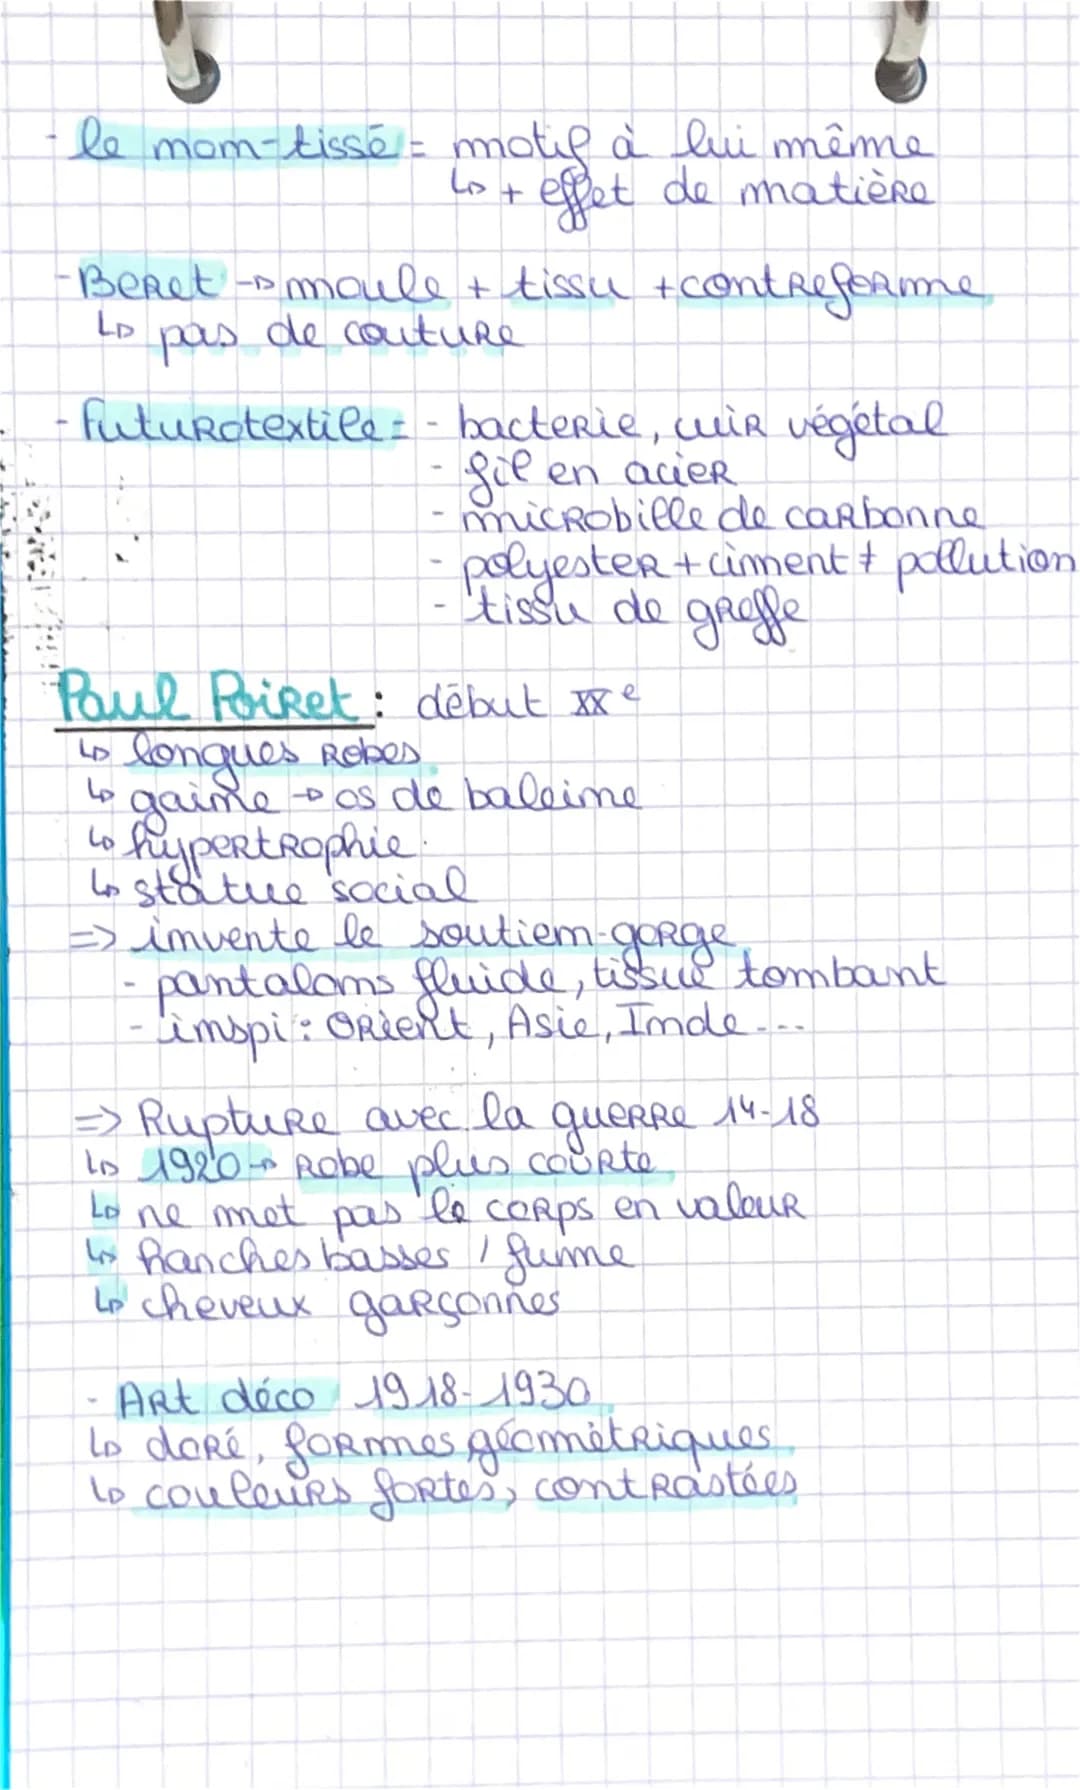 - le non-tissé = motif à lui même
↳ + effet de matière
- Beret → moule + tissu + contreforme
↳ pas de couture
- futurotextile = - bacterie, cuir végétal
- fil en acier
- microbille de carbonne
- polyester + ciment ≠ pollution
- tissu de greffe
Paul Poiret : début XXe
↳ longues robes
↳ gaine → os de baleine
↳ hypertrophie.
↳ statue social
=> invente le soutien-gorge
- pantalons fluide, tissue tombant
- inspi : orient, Asie, Inde...
=> Rupture avec la guerre 14-18
↳ 1920 → robe plus courte
↳ ne met pas le corps en valeur
↳ hanches basses / fume
↳ cheveux garçonnes
- Art déco 1918-1930
↳ doré, formes géométriques
↳ couleurs fortes, contrastées